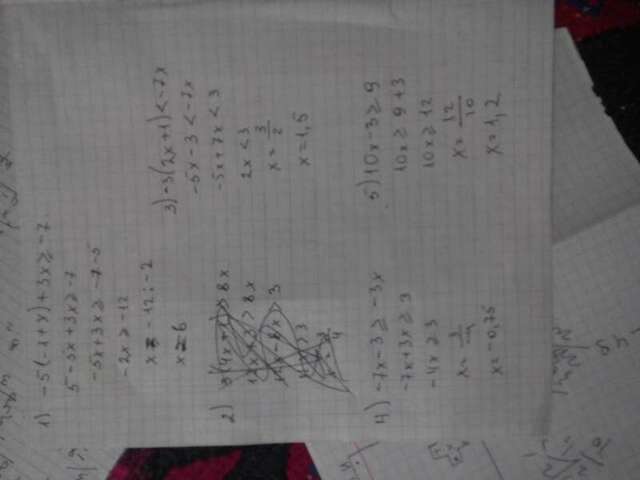 1) -5(-1+x)+3x ≥ -7
5-5x+3x ≥ -7
-5x+3x ≥ -7-5
-2x ≥ -12
x = -12 : -2
x = 6
2) 3(4x+1) > 8x
12x+3 > 8x
12x-8x > 3
4x > 3
x = 3/4
3) -3(2x+1) < -7x
-5x-3 < -7x
-5x+7x < 3
2x < 3
x = 3/2
x = 1,5
4) -7x-3 ≥ -3x
-7x+3x ≥ 3
-4x ≥ 3
x = 3/-4
x = -0,75
5) 10x-3 ≥ 9
10x ≥ 9+3
10x ≥ 12
x = 12/10
x = 1,2